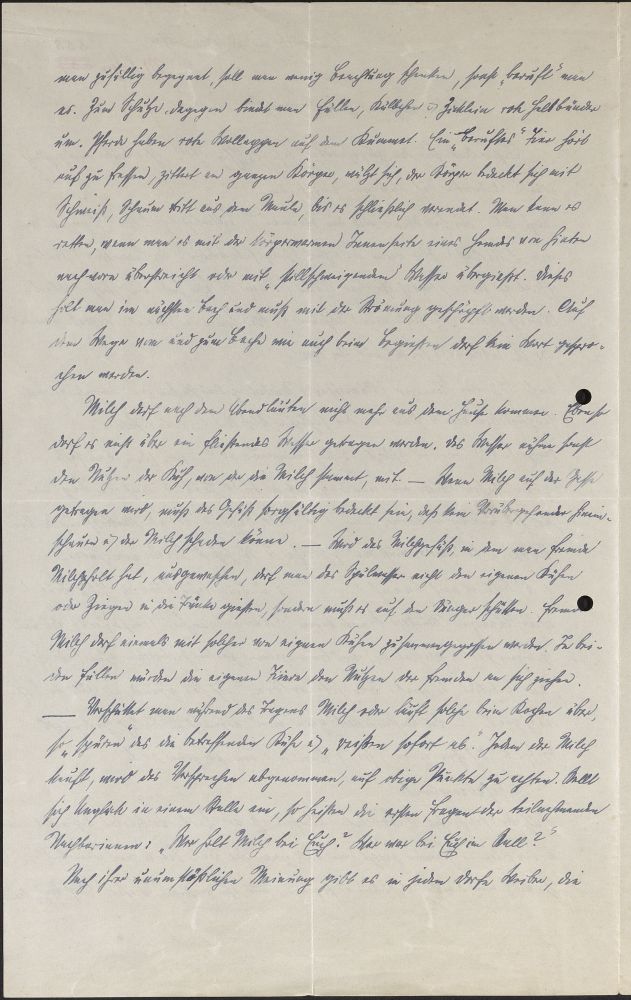 man zufällig begegnet, soll man wenig Beachtung schenken, sonst „beruft“ man
es. Zum Schutze dagegen bindet man Füllen, Kälbchen u. Zicklein rote Halsbänder
um. Pferde haben rote Wollappen auf dem Kummet. Ein „beruftes“ Tier hört
auf zu fressen, zittert am ganzen Körper, wälzt sich, der Körper bedeckt sich mit
Schweiß, Schaum tritt aus dem Maule, bis es schließlich verendet. Man kann es
retten, wenn man es mit der körperwarmen Innenseite eines Hemdes von hinten
nach vorn überstreicht oder mit „stillschweigendem“ Wasser übergießt. Dieses
holt man im nächsten Bach und muß mit der Strömung geschöpft werden. Auf
dem Wege vom und zum Bache wie auch beim Begießen darf kein Wort gespro-
chen werden.
Milch darf nach dem Abendläuten nicht mehr aus dem Hause kommen. Ebenso
darf es nicht über ein fließendes Wasser getragen werden. Das Wasser nähme sonst
den Nutzen der Kuh, von der die Milch stammt, mit. — Wenn Milch auf der
getragen wird, muß das Gefäß sorgfältig bedeckt sein, daß kein Vorübergehender hinein-
schauen u. der Milch schaden könne. — Wird das Milchgefäß, in dem man fremde
Milch geholt hat, ausgewaschen, darf man das Spülwasser nicht den eigenen Kühen
oder Ziegen in die Tränke gießen, sondern muß es auf den Dünger schütten. Fremde
Milch darf niemals mit solcher von eignen Kühen zusammengegossen werden. In bei-
den Fällen würden die eigenen Tiere den Nutzen der fremden an sich ziehen.
— Verschüttet man während des Tragens Milch oder läuft solche beim Kochen über,
so „spüren“ das die betreffenden Kühe u. „reißen sofort ab“. Jedem der Milch
kauft, wird das Versprechen abgenommen, auf obige Punkte zu achten. Stellt
sich Unglück in einem Stalle ein, so heißen die ersten Fragen der teilnehmenden
Nachbarinnen: „Wer holt Milch bei Euch? Wer war bei Euch im Stall?“
Nach ihrer unumstößlichen Meinung gibt es in jedem Dorfe Weiber, die